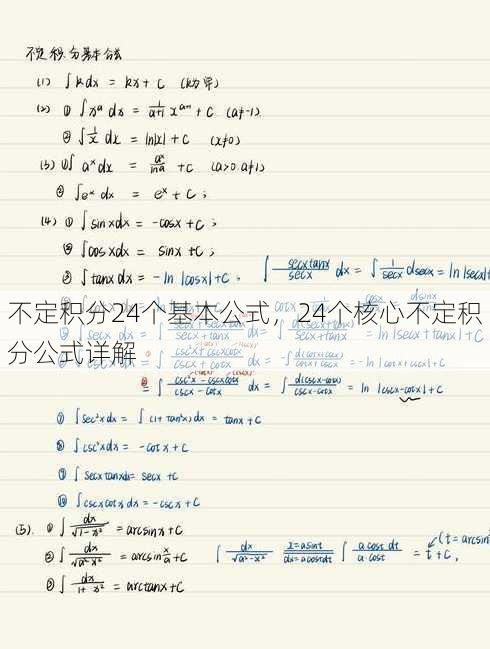 不定积分基本公式
(1) ∫kdx = kx + C (k为常)
(2) ① ∫xᵃ dx = 1/(a+1) xᵃ⁺¹ + C (a≠-1)
② ∫1/x dx = ln|x| + C (x≠0)
(3) ① ∫aˣdx = aˣ/lna + C (a>0 a≠1)
② ∫eˣ dx = eˣ + C;
(4) ① ∫sinxdx = -cosx + C;
② ∫cosxdx = sinx + C;
③ ∫tanxdx = -ln|cosx| + C; ∫ secxtanx/secx dx = ∫ 1/secx dsecx = ln|secx|
不定积分24个基本公式，24个核心不定积
分公式详解
= ∫ (csc²x - cscxcotx)/(cscx - cotx) dx = ∫ d(cscx-cotx)/(cscx-cotx) = ln|cscx-cotx| + C
⑦ ∫sec²xdx = ∫(1+tan²x)dx = tanx + C
⑧ ∫csc²xdx = -cotx + C
⑨ ∫secxtanxdx = secx + C
⑩ ∫cscxcotxdx = -cscx + C
(5). ① ∫ dx/√(1-x²) = arcsinx + C
② ∫ dx/√(a²-x²) = arcsin x/a + C ∫ dx/√(a²-x²) x=asint dx=acostdt ∫ a cost dt/(a·cost) = t + C, (t = arcsin
③ ∫ dx/(1+x²) = arctanx + C